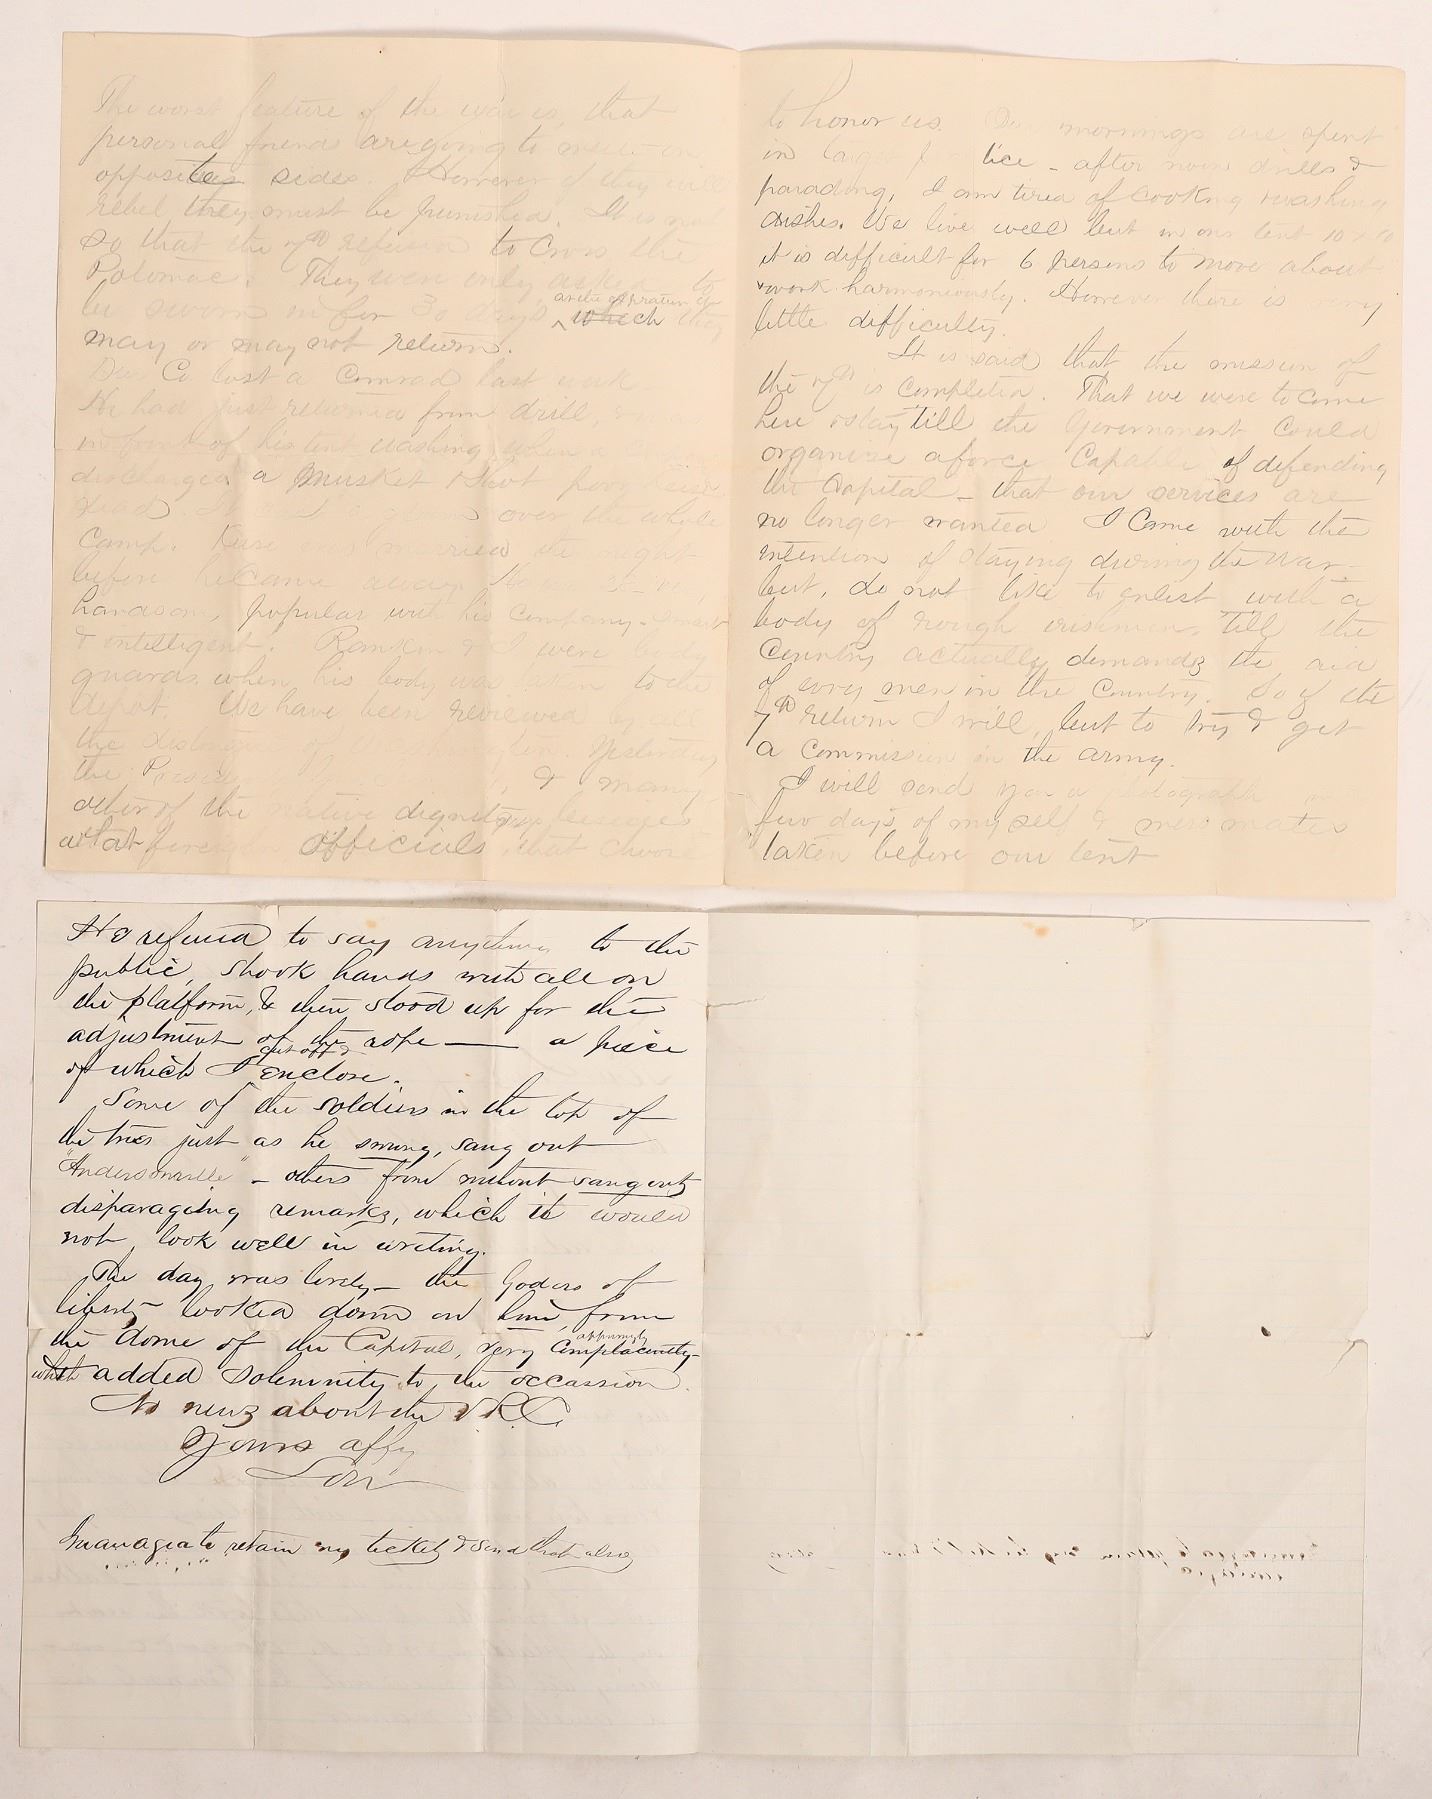 The worst feature of the war is, that
personal friends are going to meet on
opposites sides. However if they will
rebel, they must be punished. It is not
so that the 7th refused to cross the
Potomac. They were only asked to
be sworn in for 30 days, at the expiration of
which they
may or may not return.
Our Co lost a Comrad last week
He had just returned from drill,
in front of his tent washing when a
discharged a musket & shot poor Keese
dead. over the whole
Camp. Keese was married the night
before he came away.
handsom, popular with his company - smart
& intelligent. Rankin & I were body
guards when his body was taken to the
depot. We have been reviewed by all
the of Washington. Yesterday
the & many
other of the native dignitarys besides
what foreign officials that choose
to honor us. Our mornings are spent
in - after noon drills &
parading, I am tired of cooking & washing
dishes. We live well but in our tent 10 x 10
it is difficult for 6 persons to move about
& work harmoniously. However there is very
little difficulty.
It is said that the mission of
the 7th is completed. That we were to come
here & stay till the Government could
organise a force capable of defending
the Capital - that our services are
no longer wanted I came with the
intention of staying during the War -
but, do not like to enlist with a
body of rough irishmen, till the
Country actually demands the aid
of every men in the Country. So if the
7th return I will, but to try & get
a commission in the army.
I will send you a photograph in a
few days of myself & mess mates
taken before our tent
He refused to say anything to the
public, shook hands with all on
the platform, & then stood up for the
adjustment of the rope — a piece
of which I cut off & enclose.
Some of the soldiers in the top of
the trees just as he swung, sang out
"Andersonville" - others from without sang out
disparaging remarks, which it would
not look well in writing.
The day was lovely - the Godess of
liberty looked down on him, from
the dome of the Capitol, very
complacently -
which added solemnity to the occassion.
No news about the V.R.C.
Yours affy
Lou
I managed to retain my ticket & send that also